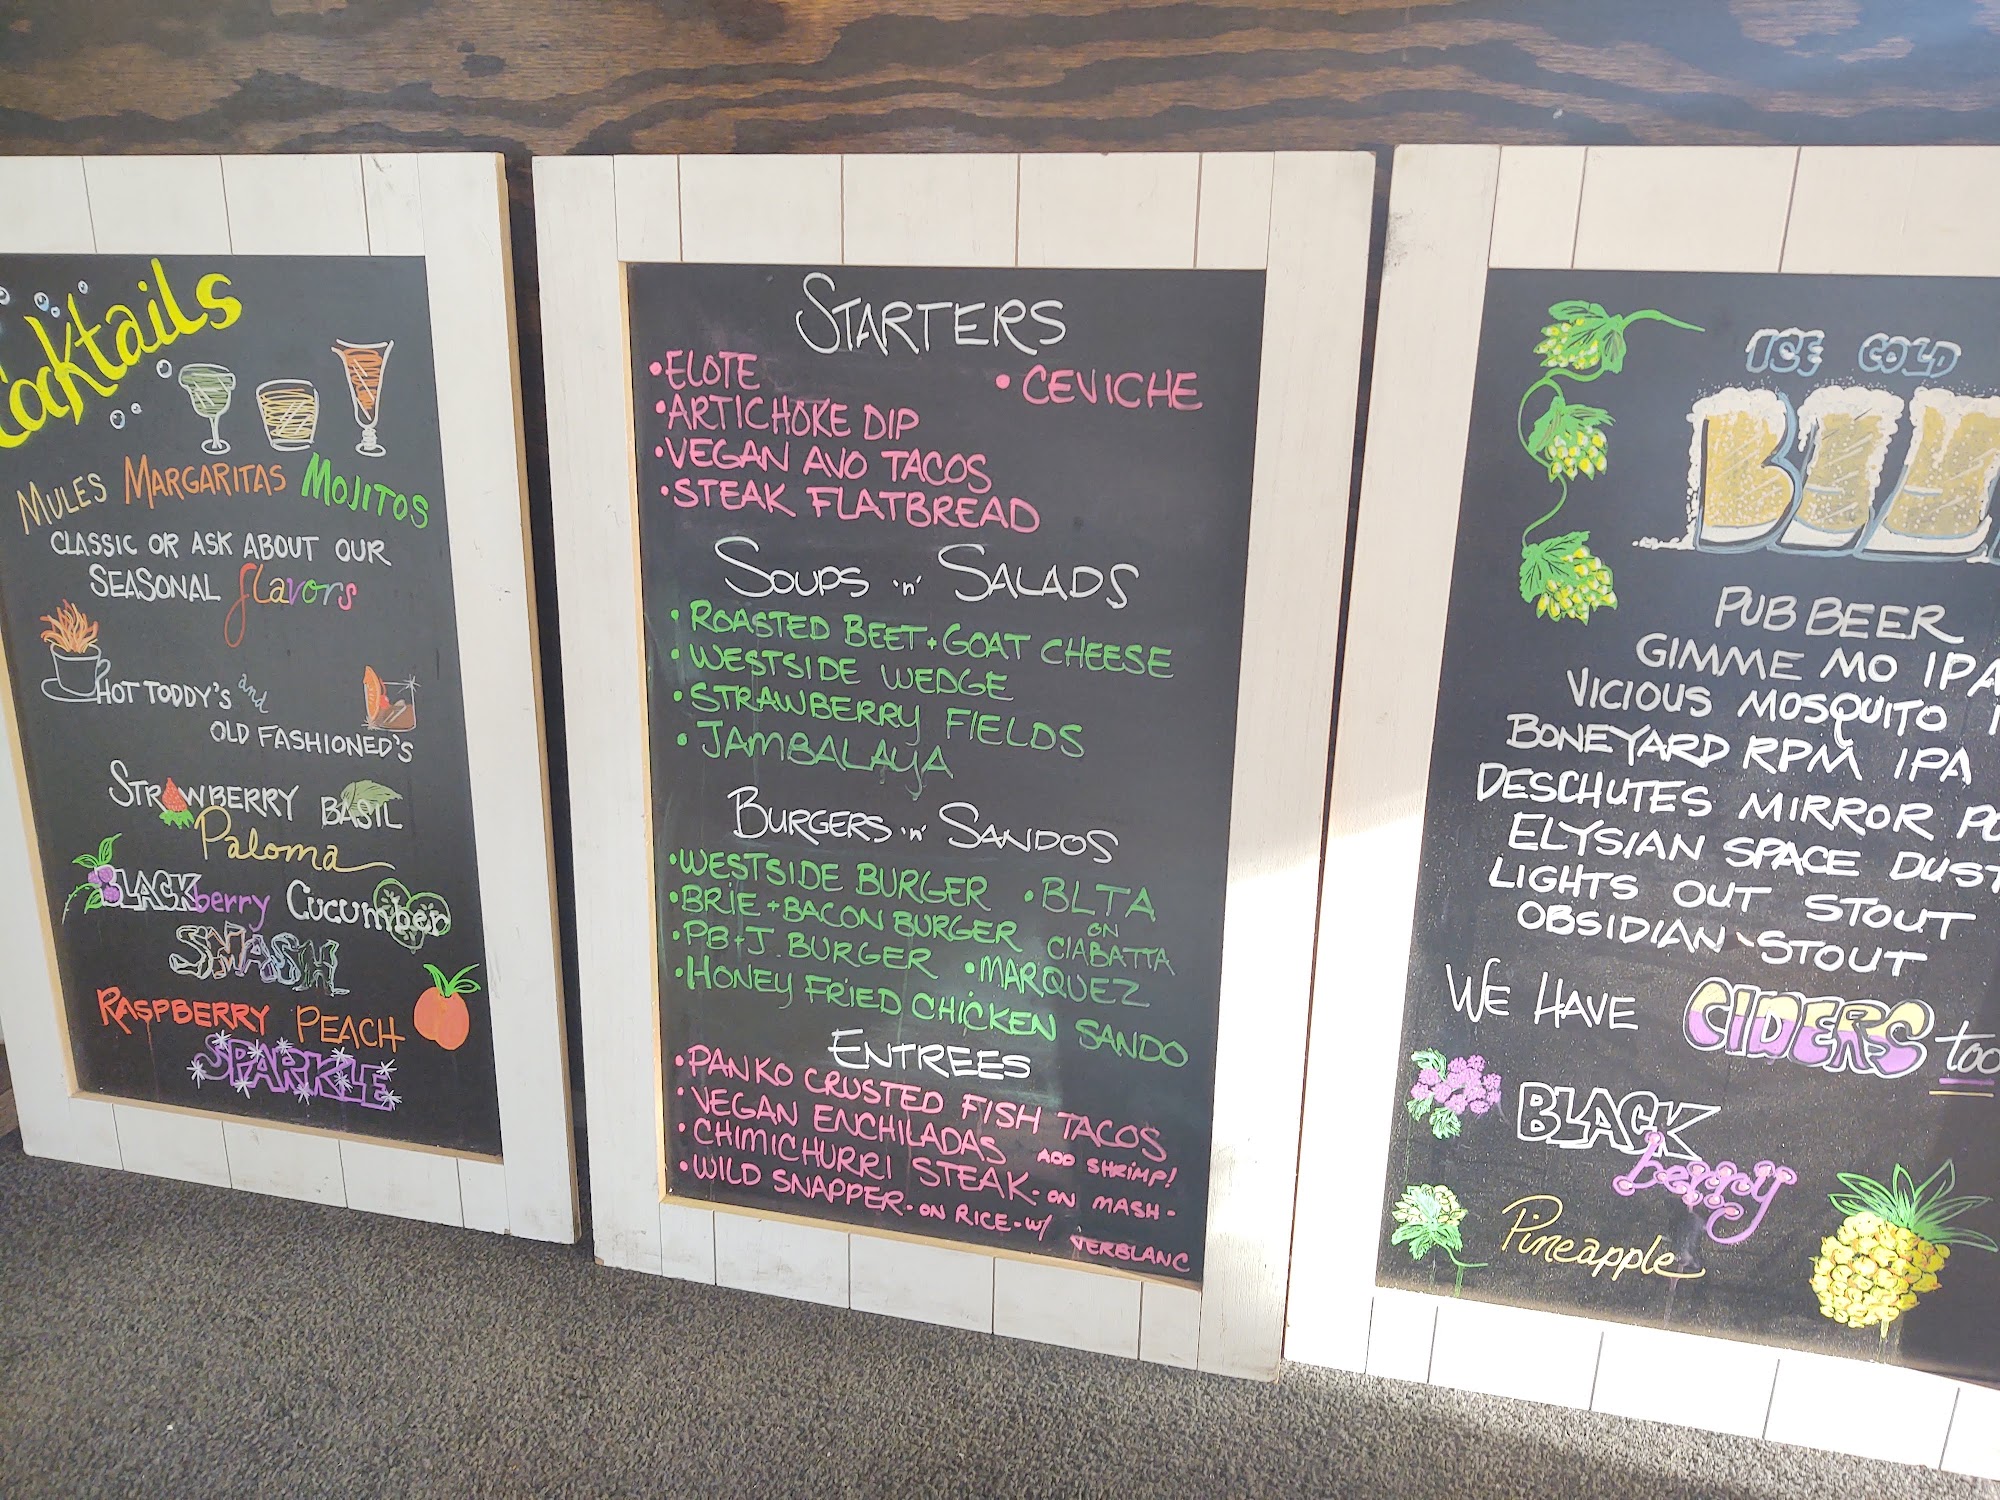 Cocktails
MULES MARGARITAS MOJITOS
CLASSIC OR ASK ABOUT OUR
SEASONAL flavors
HOT TODDY'S and
OLD FASHIONED'S
STRAWBERRY BASIL
Paloma
BLACKberry CUCUMBER
SMASH
RASPBERRY PEACH
SPARKLE
STARTERS
• ELOTE
• CEVICHE
• ARTICHOKE DIP
• VEGAN AVO TACOS
• STEAK FLATBREAD
SOUPS 'n' SALADS
• ROASTED BEET + GOAT CHEESE
• WESTSIDE WEDGE
• STRAWBERRY FIELDS
• JAMBALAYA
BURGERS 'n' SANDOS
• WESTSIDE BURGER
• BLTA
ON
CIABATTA
• BRIE + BACON BURGER
• PB + J. BURGER
• MARQUEZ
• HONEY FRIED CHICKEN SANDO
ENTREES
• PANKO CRUSTED FISH TACOS
• VEGAN ENCHILADAS ADD SHRIMP!
• CHIMICHURRI STEAK - ON MASH -
• WILD SNAPPER - ON RICE - W/ VERBLANC
ICE COLD
BEE
PUB BEER
GIMME MO IPA
VICIOUS MOSQUITO I
BONEYARD RPM IPA
DESCHUTES MIRROR PO
ELYSIAN SPACE DUST
LIGHTS OUT STOUT
OBSIDIAN - STOUT
WE HAVE CIDERS too
BLACK
berry
Pineapple